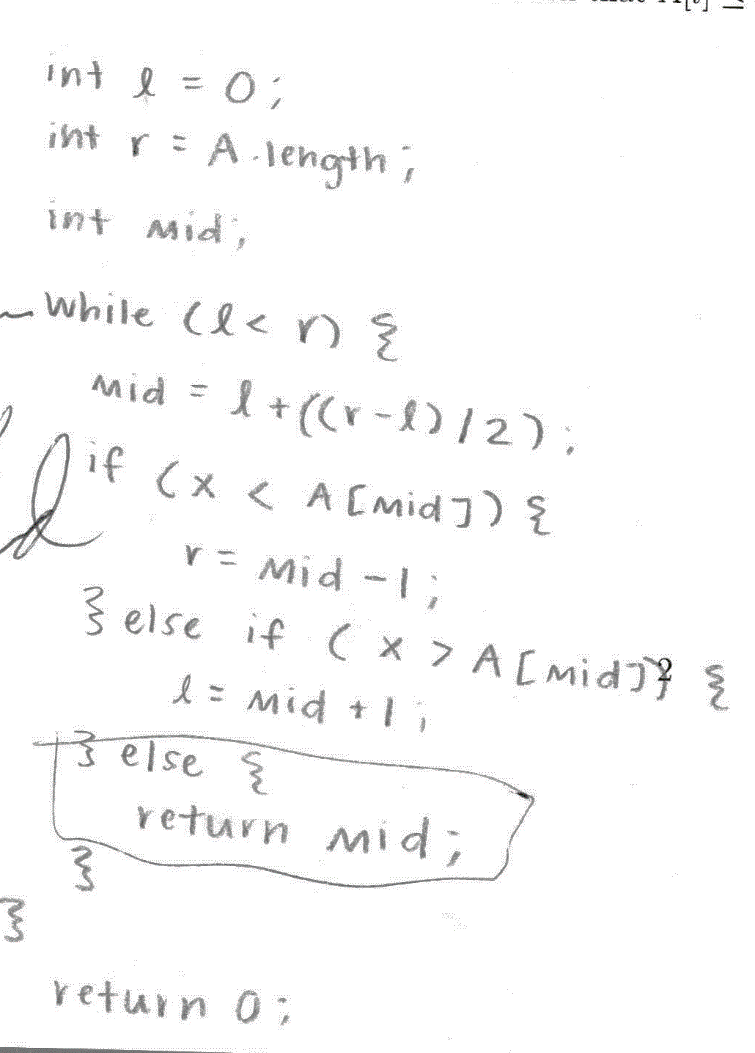 that A[i] ≤
int l = 0;
int r = A.length;
int mid;
While (l < r) {
mid = l + ((r-l)/2);
if (x < A[mid]) {
r = mid -1;
} else if (x > A[mid]) {
2
l = mid + 1;
} else {
return mid;
}
}
return 0;